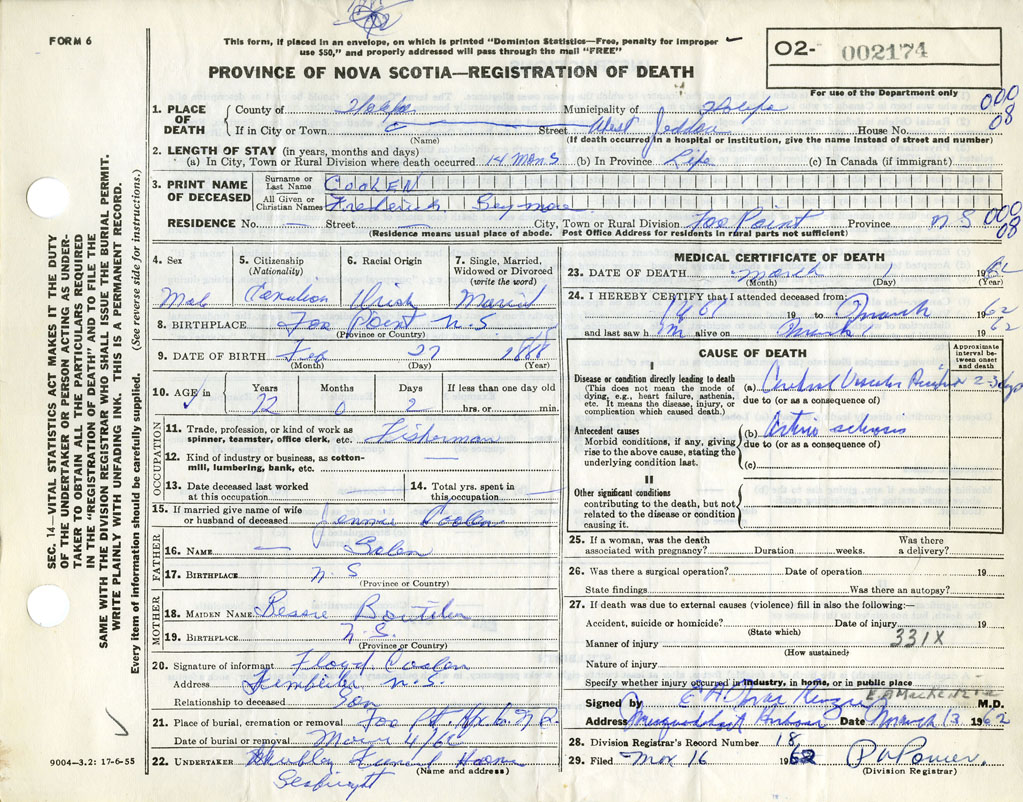 FORM 6
This form, if placed in an envelope, on which is printed "Dominion Statistics—Free, penalty for improper
use $50," and properly addressed will pass through the mail "FREE"
O2- 002174
For use of the Department only
PROVINCE OF NOVA SCOTIA—REGISTRATION OF DEATH
000
08
1. PLACE OF DEATH
County of Halifax Municipality of Halifax
If in City or Town Street West Jeddore House No.
(Name) (If death occurred in a hospital or institution, give the name instead of street and number)
2. LENGTH OF STAY (in years, months and days)
(a) In City, Town or Rural Division where death occurred 14 Mons (b) In Province Life (c) In Canada (if immigrant)
3. PRINT NAME OF DECEASED
Surname or Last Name COOLEN
All Given or Christian Names Frederick Seymore
RESIDENCE No. — Street — City, Town or Rural Division Fox Point Province N.S.
000
08
(Residence means usual place of abode. Post Office Address for residents in rural parts not sufficient)
4. Sex Male
5. Citizenship (Nationality) Canadian
6. Racial Origin Irish
7. Single, Married, Widowed or Divorced (write the word) Married
8. BIRTHPLACE Fox Point N.S.
(Province or Country)
9. DATE OF BIRTH Feb 27 1888
(Month) (Day) (Year)
10. AGE in Years Months Days If less than one day old
72 0 2 hrs. or min.
OCCUPATION
11. Trade, profession, or kind of work as spinner, teamster, office clerk, etc. Fisherman
12. Kind of industry or business, as cotton-mill, lumbering, bank, etc. —
13. Date deceased last worked at this occupation
14. Total yrs. spent in this occupation
15. If married give name of wife or husband of deceased Jennie Coolen
FATHER
16. NAME — Colen
17. BIRTHPLACE N.S.
(Province or Country)
MOTHER
18. MAIDEN NAME Bessie Boutilier
19. BIRTHPLACE N.S.
(Province or Country)
20. Signature of informant Floyd Coolen
Address Timberlea N.S.
Relationship to deceased Son
21. Place of burial, cremation or removal Fox Pt.
Date of burial or removal 4/62
22. UNDERTAKER Hubley Funeral Home
(Name and address)
Seabright
MEDICAL CERTIFICATE OF DEATH
23. DATE OF DEATH March 1 1962
(Month) (Day) (Year)
24. I HEREBY CERTIFY that I attended deceased from:
1961 19 to March 1962
and last saw h im alive on March 1 1962
CAUSE OF DEATH
Approximate interval between onset and death
I
Disease or condition directly leading to death
(This does not mean the mode of dying, e.g., heart failure, asthenia, etc. It means the disease, injury, or complication which caused death.)
(a) Cerebral Vascular 2-3 days
due to (or as a consequence of)
Antecedent causes
Morbid conditions, if any, giving rise to the above cause, stating the underlying condition last.
(b) Arterio sclerosis
due to (or as a consequence of)
(c)
II
Other significant conditions
contributing to the death, but not related to the disease or condition causing it.
25. If a woman, was the death associated with pregnancy? Duration weeks. Was there a delivery?
26. Was there a surgical operation? Date of operation 19
State findings Was there an autopsy?
27. If death was due to external causes (violence) fill in also the following:—
Accident, suicide or homicide? Date of injury 19
(State which)
Manner of injury 331X
(How sustained)
Nature of injury
Specify whether injury occurred in industry, in home, or in public place
Signed by E A MacKenzie E A MacKenzie M.D.
Address Musquodoboit Harbour Date March 13 1962
28. Division Registrar's Record Number 18
29. Filed Mar 16 1962 Power
(Division Registrar)
SEC. 14—VITAL STATISTICS ACT MAKES IT THE DUTY
OF THE UNDERTAKER OR PERSON ACTING AS UNDER-
TAKER TO OBTAIN ALL THE PARTICULARS REQUIRED
IN THE "REGISTRATION OF DEATH" AND TO FILE THE
SAME WITH THE DIVISION REGISTRAR WHO SHALL ISSUE THE BURIAL PERMIT.
WRITE PLAINLY WITH UNFADING INK. THIS IS A PERMANENT RECORD.
Every item of information should be carefully supplied. (See reverse side for instructions.)
9004—3.2: 17-6-55